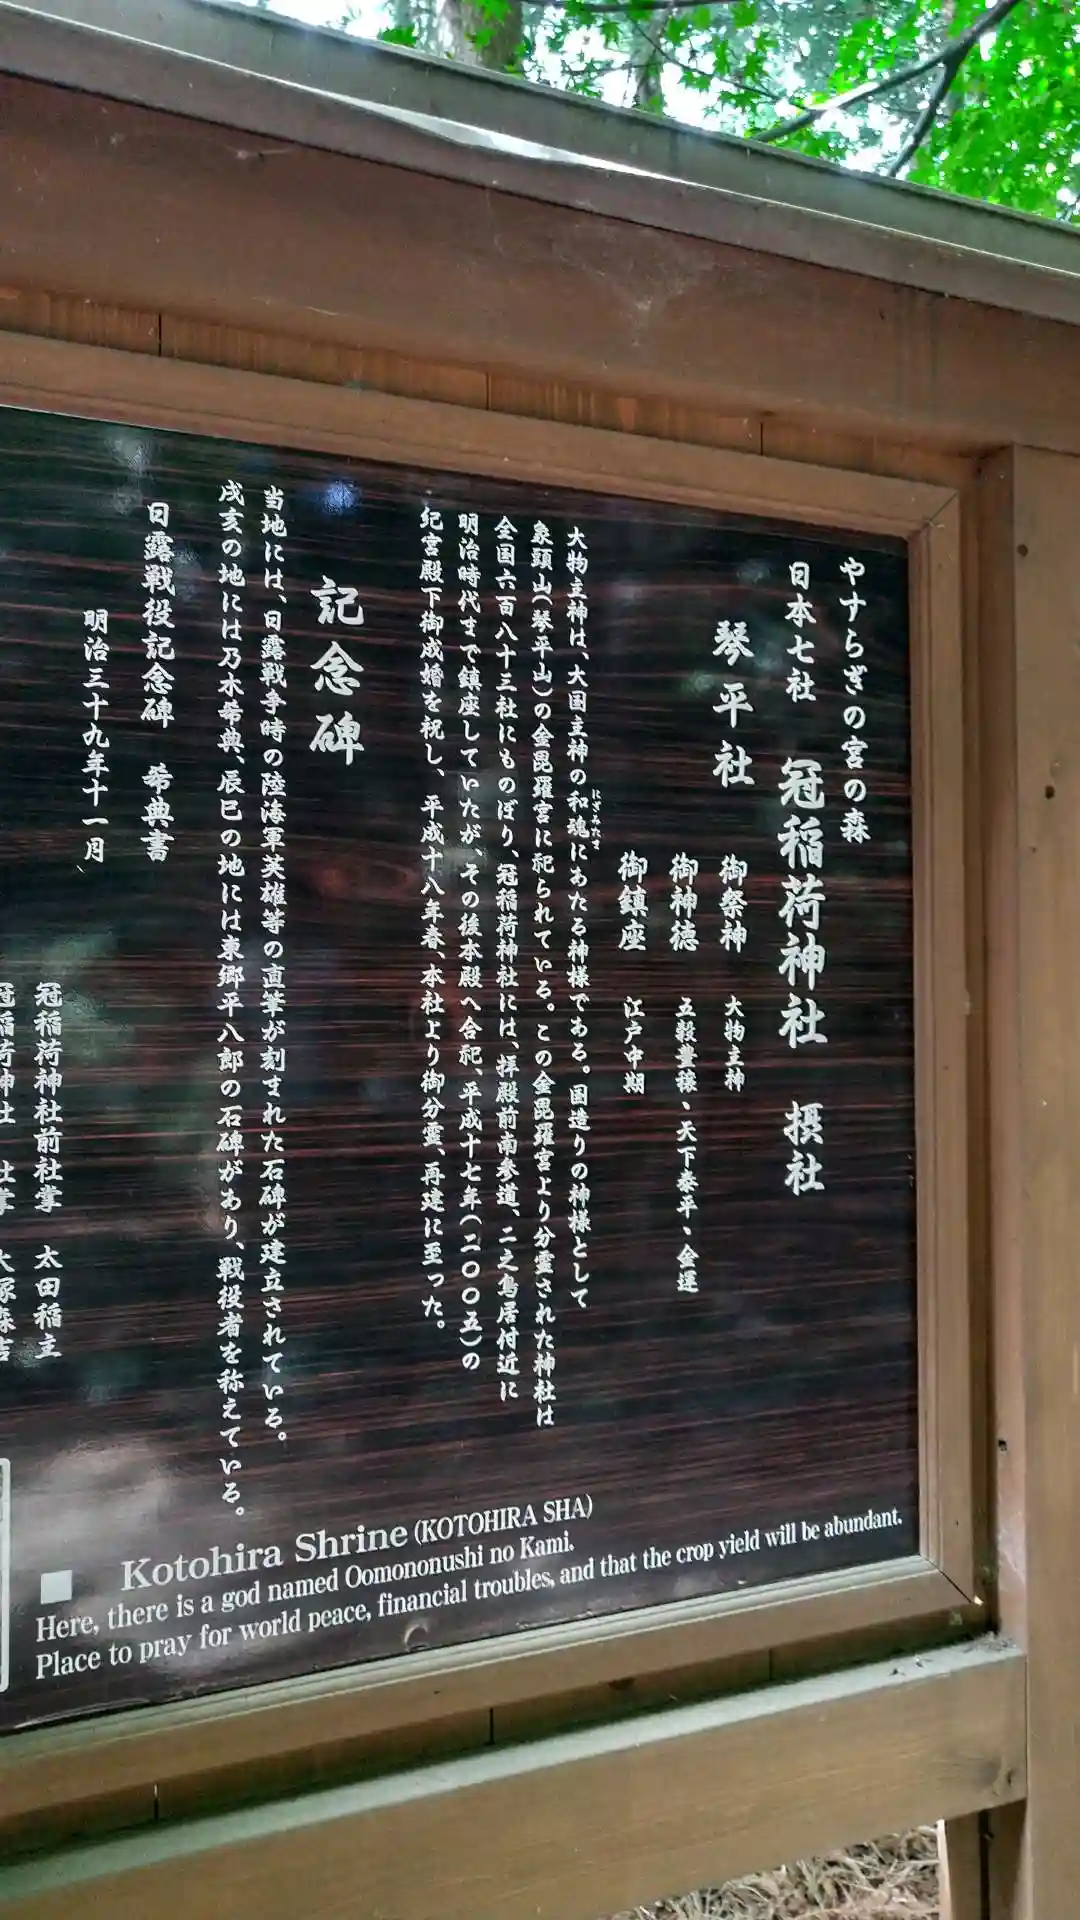 やすらぎの宮の森
日本七社 冠稲荷神社 摂社
琴平社
御祭神 大物主神
御神徳 五穀豊穣、天下泰平、金運
御鎮座 江戸中期
大物主神は、大国主神の和魂にあたる神様である。国造りの神様として
にぎみたま
象頭山(琴平山)の金毘羅宮に祀られている。この金毘羅宮より分霊された神社は
全国六百八十三社にものぼり、冠稲荷神社には、拝殿前南参道、二之鳥居付近に
明治時代まで鎮座していたが、その後本殿へ合祀、平成十七年(二〇〇五)の
紀宮殿下御成婚を祝し、平成十八年春、本社より御分霊、再建に至った。
記念碑
当地には、日露戦争時の陸海軍英雄等の直筆が刻まれた石碑が建立されている。
戌亥の地には乃木希典、辰巳の地には東郷平八郎の石碑があり、戦役者を称えている。
日露戦役記念碑 希典書
明治三十九年十一月
冠稲荷神社前社掌 太田稲主
冠稲荷神社 社掌 大塚森吉
Kotohira Shrine (KOTOHIRA SHA)
Here, there is a god named Oomononushi no Kami.
Place to pray for world peace, financial troubles, and that the crop yield will be abundant.